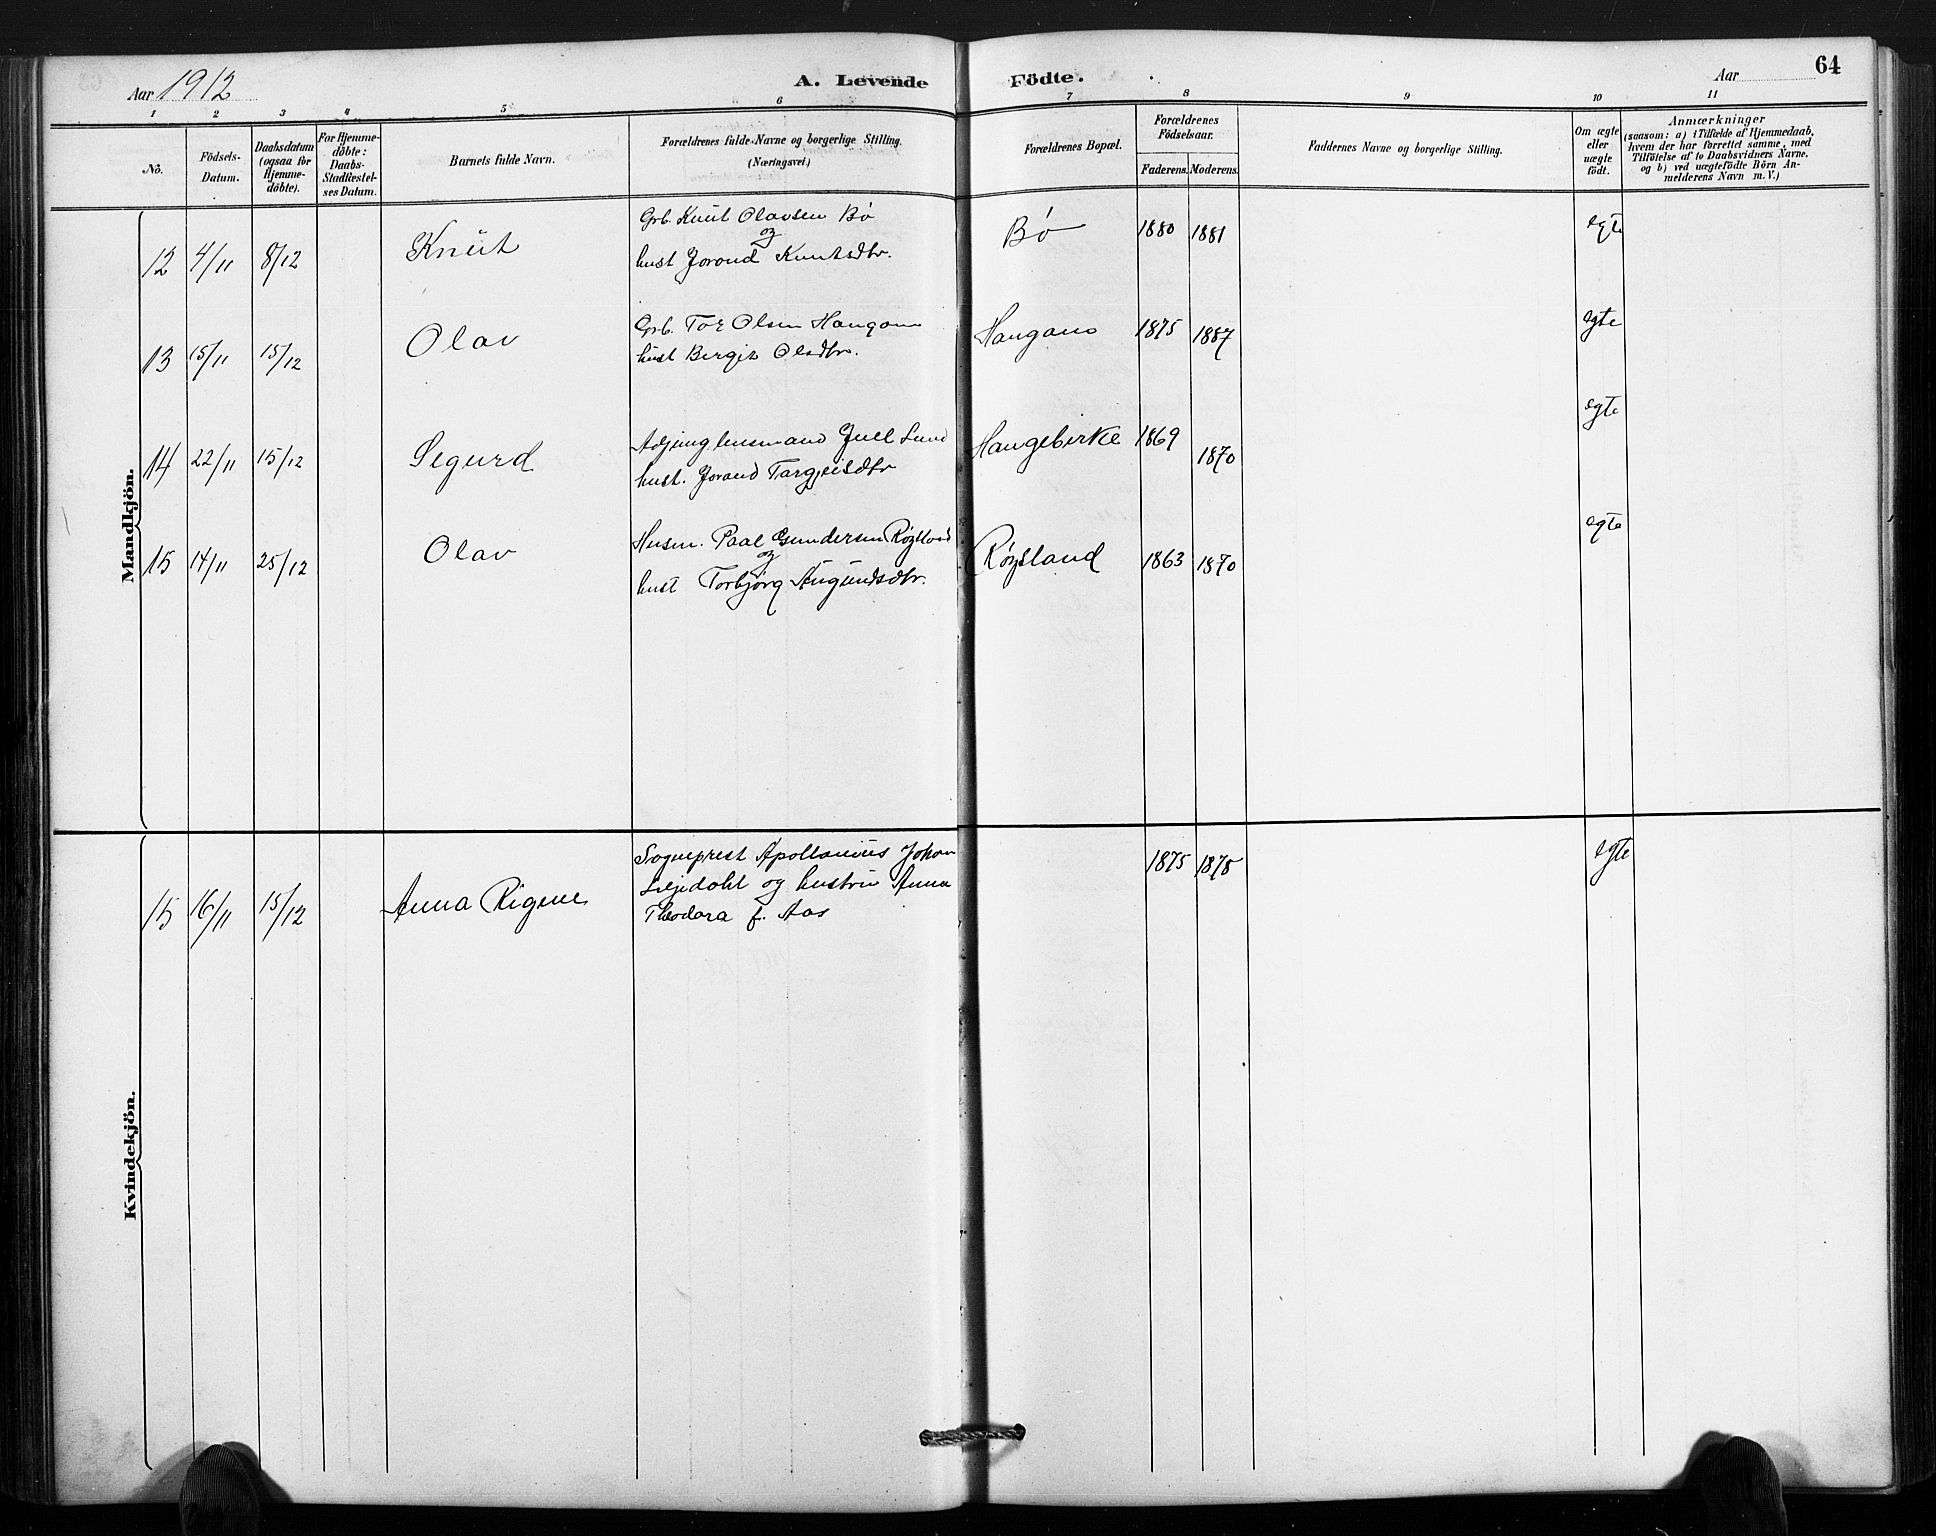 Aar 1912
A. Levende Födte.
Aar
64
1 2 3 4 5 6 7 8 9 10 11
No.
Födsels-Datum.
Daabsdatum (ogsaa for Hjemme-döbte).
For Hjemme-döbte: Daabs-Stadfæstel-ses Datum.
Barnets fulde Navn.
Forældrenes fulde Navne og borgerlige Stilling.
(Næringsvei.)
Forældrenes Bopæl.
Forældrenes Födselsaar.
Faderens. Moderens.
Faddernes Navne og borgerlige Stilling.
Om ægte eller uægte födt.
Anmærkninger
(saasom: a) i Tilfælde af Hjemmedaab,
hvem der har forrettet samme, med
Tilföielse af to Daabsvidners Navne,
og b) ved uægtefödte Börn An-
melderens Navn m. V.)
Mandkjön.
12 4/11 8/12 Knut
Grb. Knut Olavsen Bø
og
hust Jorond Knutsdtr.
Bø 1880 1881 egte
13 15/11 15/12 Olav
Grb. Tor Olsen Haugann
hust Bergit Olsdtr.
Haugann 1875 1887 egte
14 22/11 15/12 Segurd
husmand Juel Lund
hust. Jorand Targjeisdtr
Haugebirke 1869 1870 egte
15 14/11 25/12 Olav
Husm. Paal Gundersen Røysland
og
hust Torbjørg Augundsdtr.
Røysland 1863 1870 egte
Kvindekjön.
15 16/11 15/12 Anna Rigmor
Sogneprest Apollonius Johan
Liljedahl og hustru Anna
Theodora f. Aas
1875 1875 egte